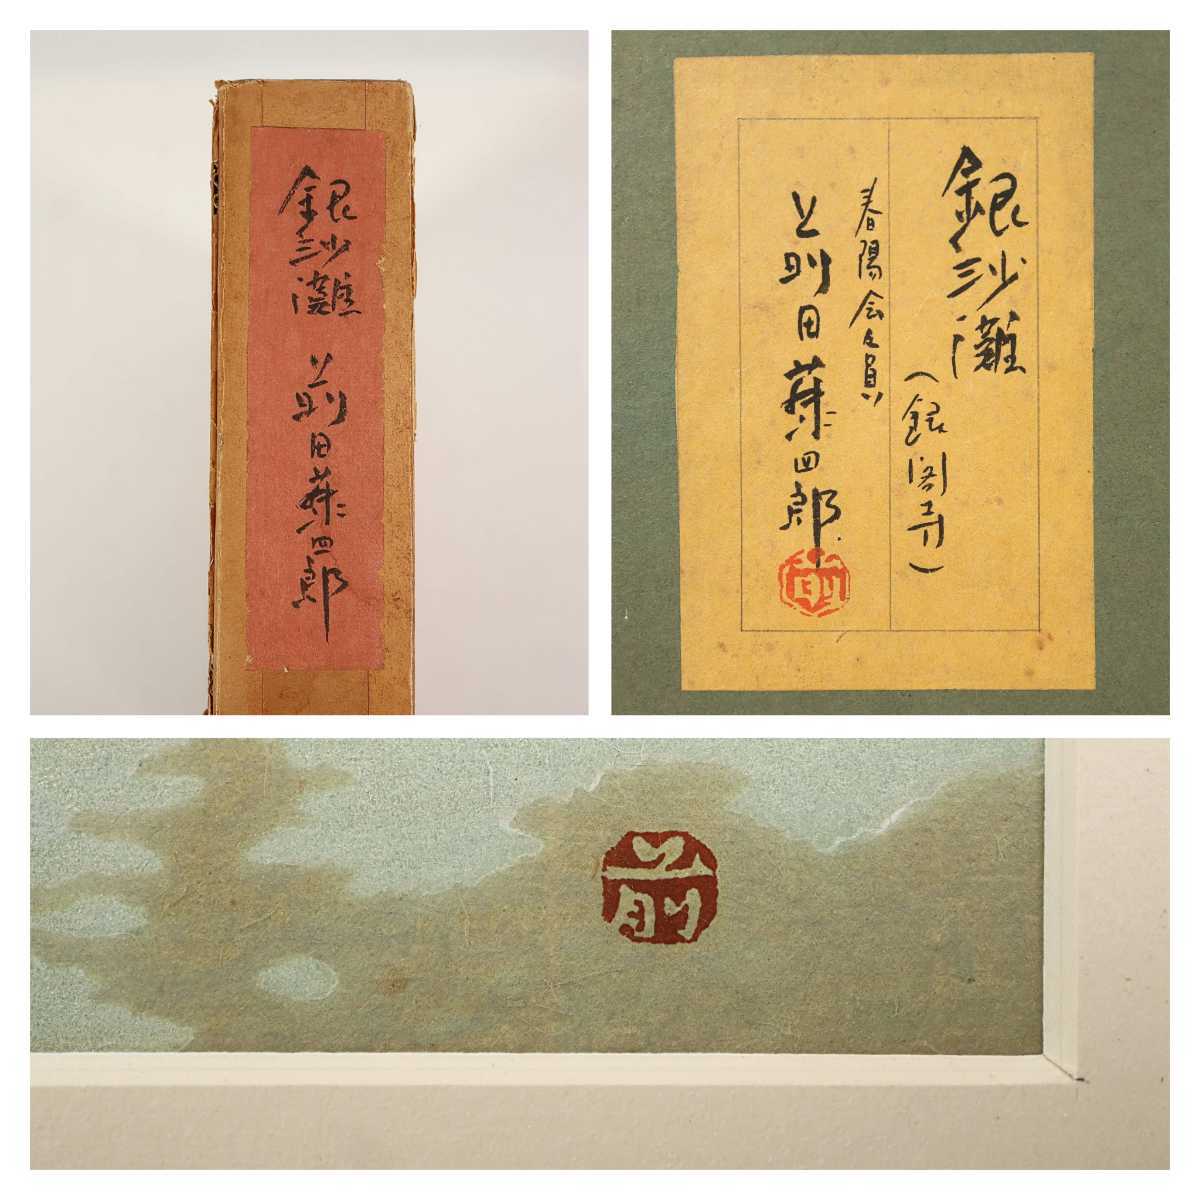 銀沙灘 前田藤四郎
銀沙灘
(銀閣寺)
春陽会々員
前田藤四郎
前
前